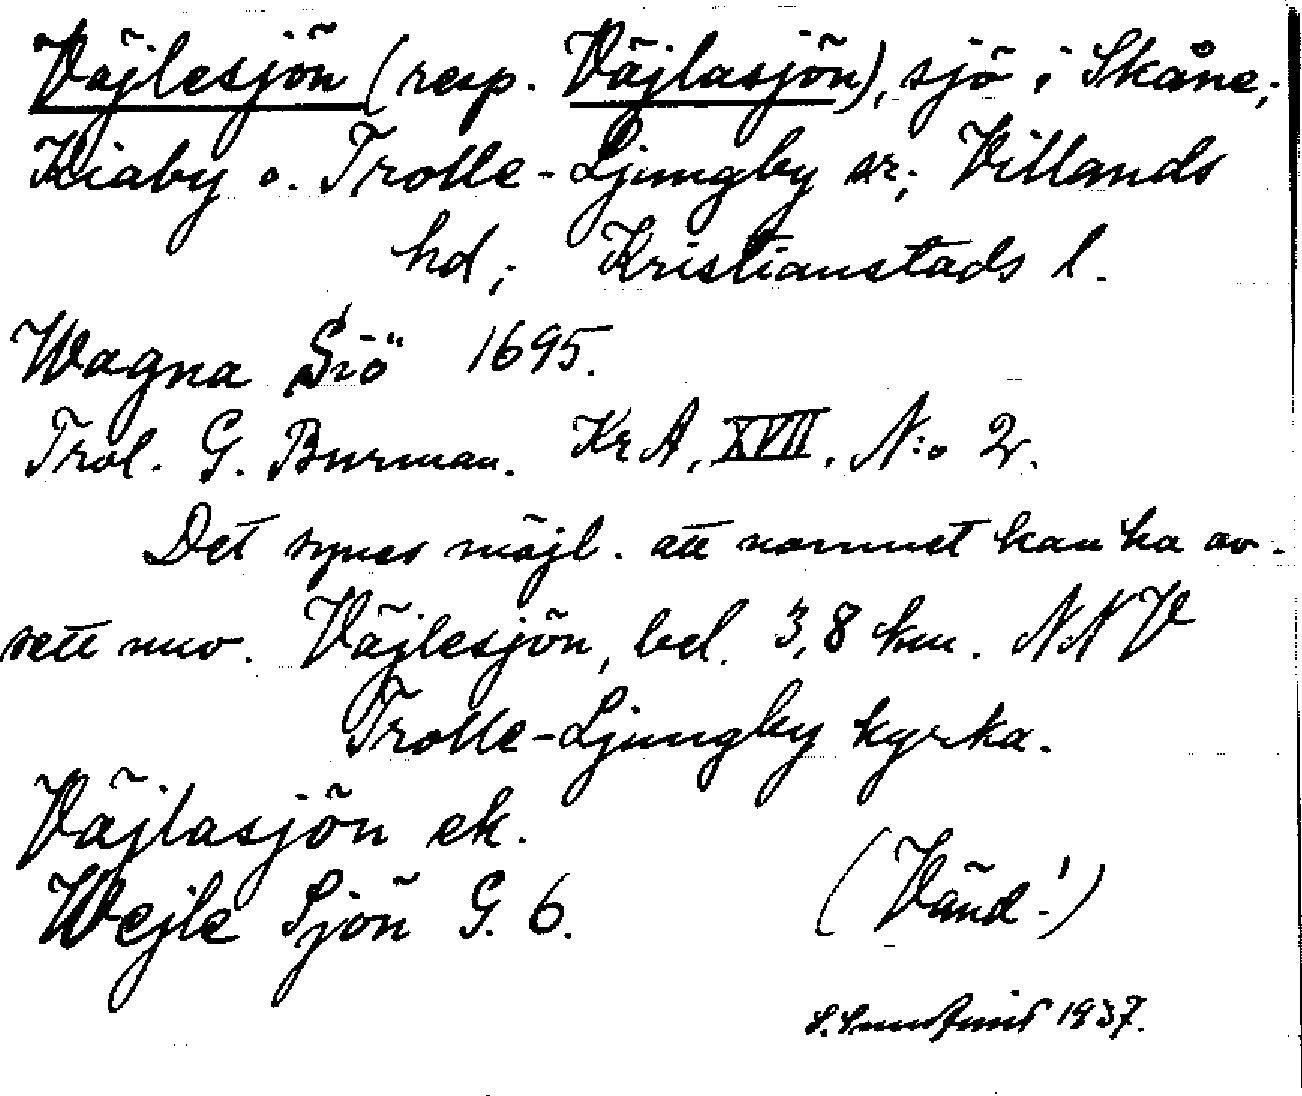 Väjlesjön (resp. Väjlasjön), sjö i Skåne;
Kiaby o. Trolle-Ljungby sr; Villands
hd; Kristianstads l.
Wagna Siö 1695.
Trol. G. Burman. KrA, XVII. N:o 2.
Det synes möjl. att namnet kan ha av-
sett nuv. Väjlesjön, bel. 3,8 km. NNV
Trolle-Ljungby kyrka.
Väjlasjön ek.
Wejle Sjön G. 6.
(Vänd!)
1937.